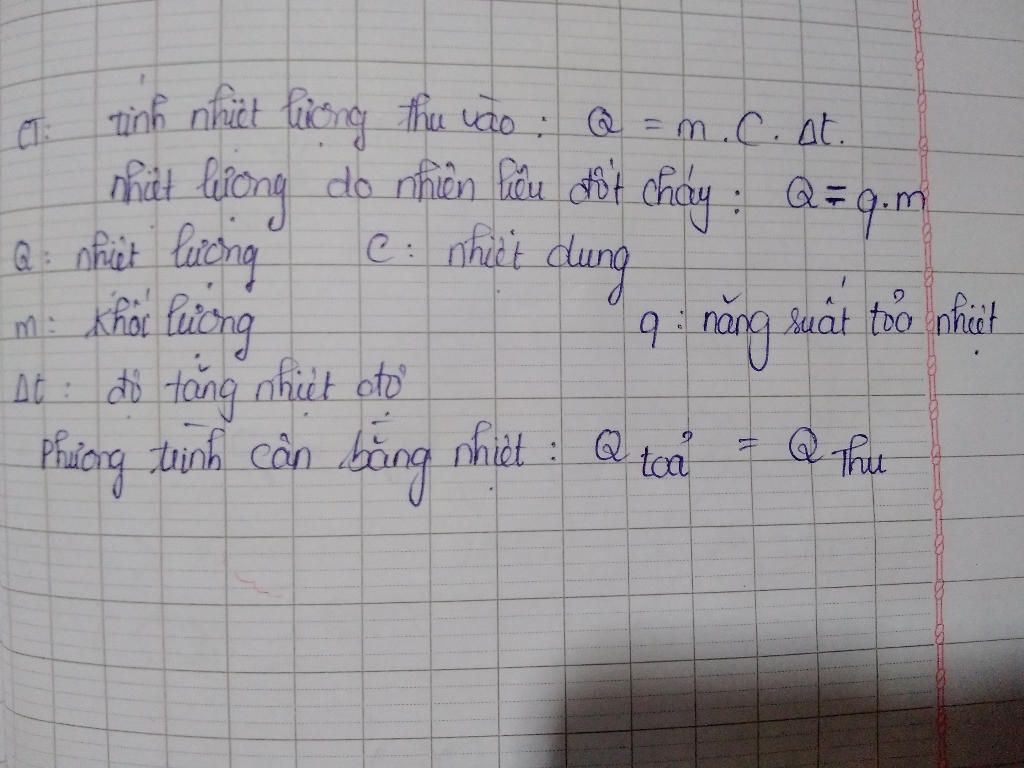 CT: tính nhiệt lượng thu vào : Q = m.C.Δt.
nhiệt lượng do nhiên liệu đốt cháy : Q = q.m
Q: nhiệt lượng C: nhiệt dung
m: khối lượng q: năng suất toả nhiệt
Δt: độ tăng nhiệt độ
Phương trình cân bằng nhiệt : Q toả = Q thu